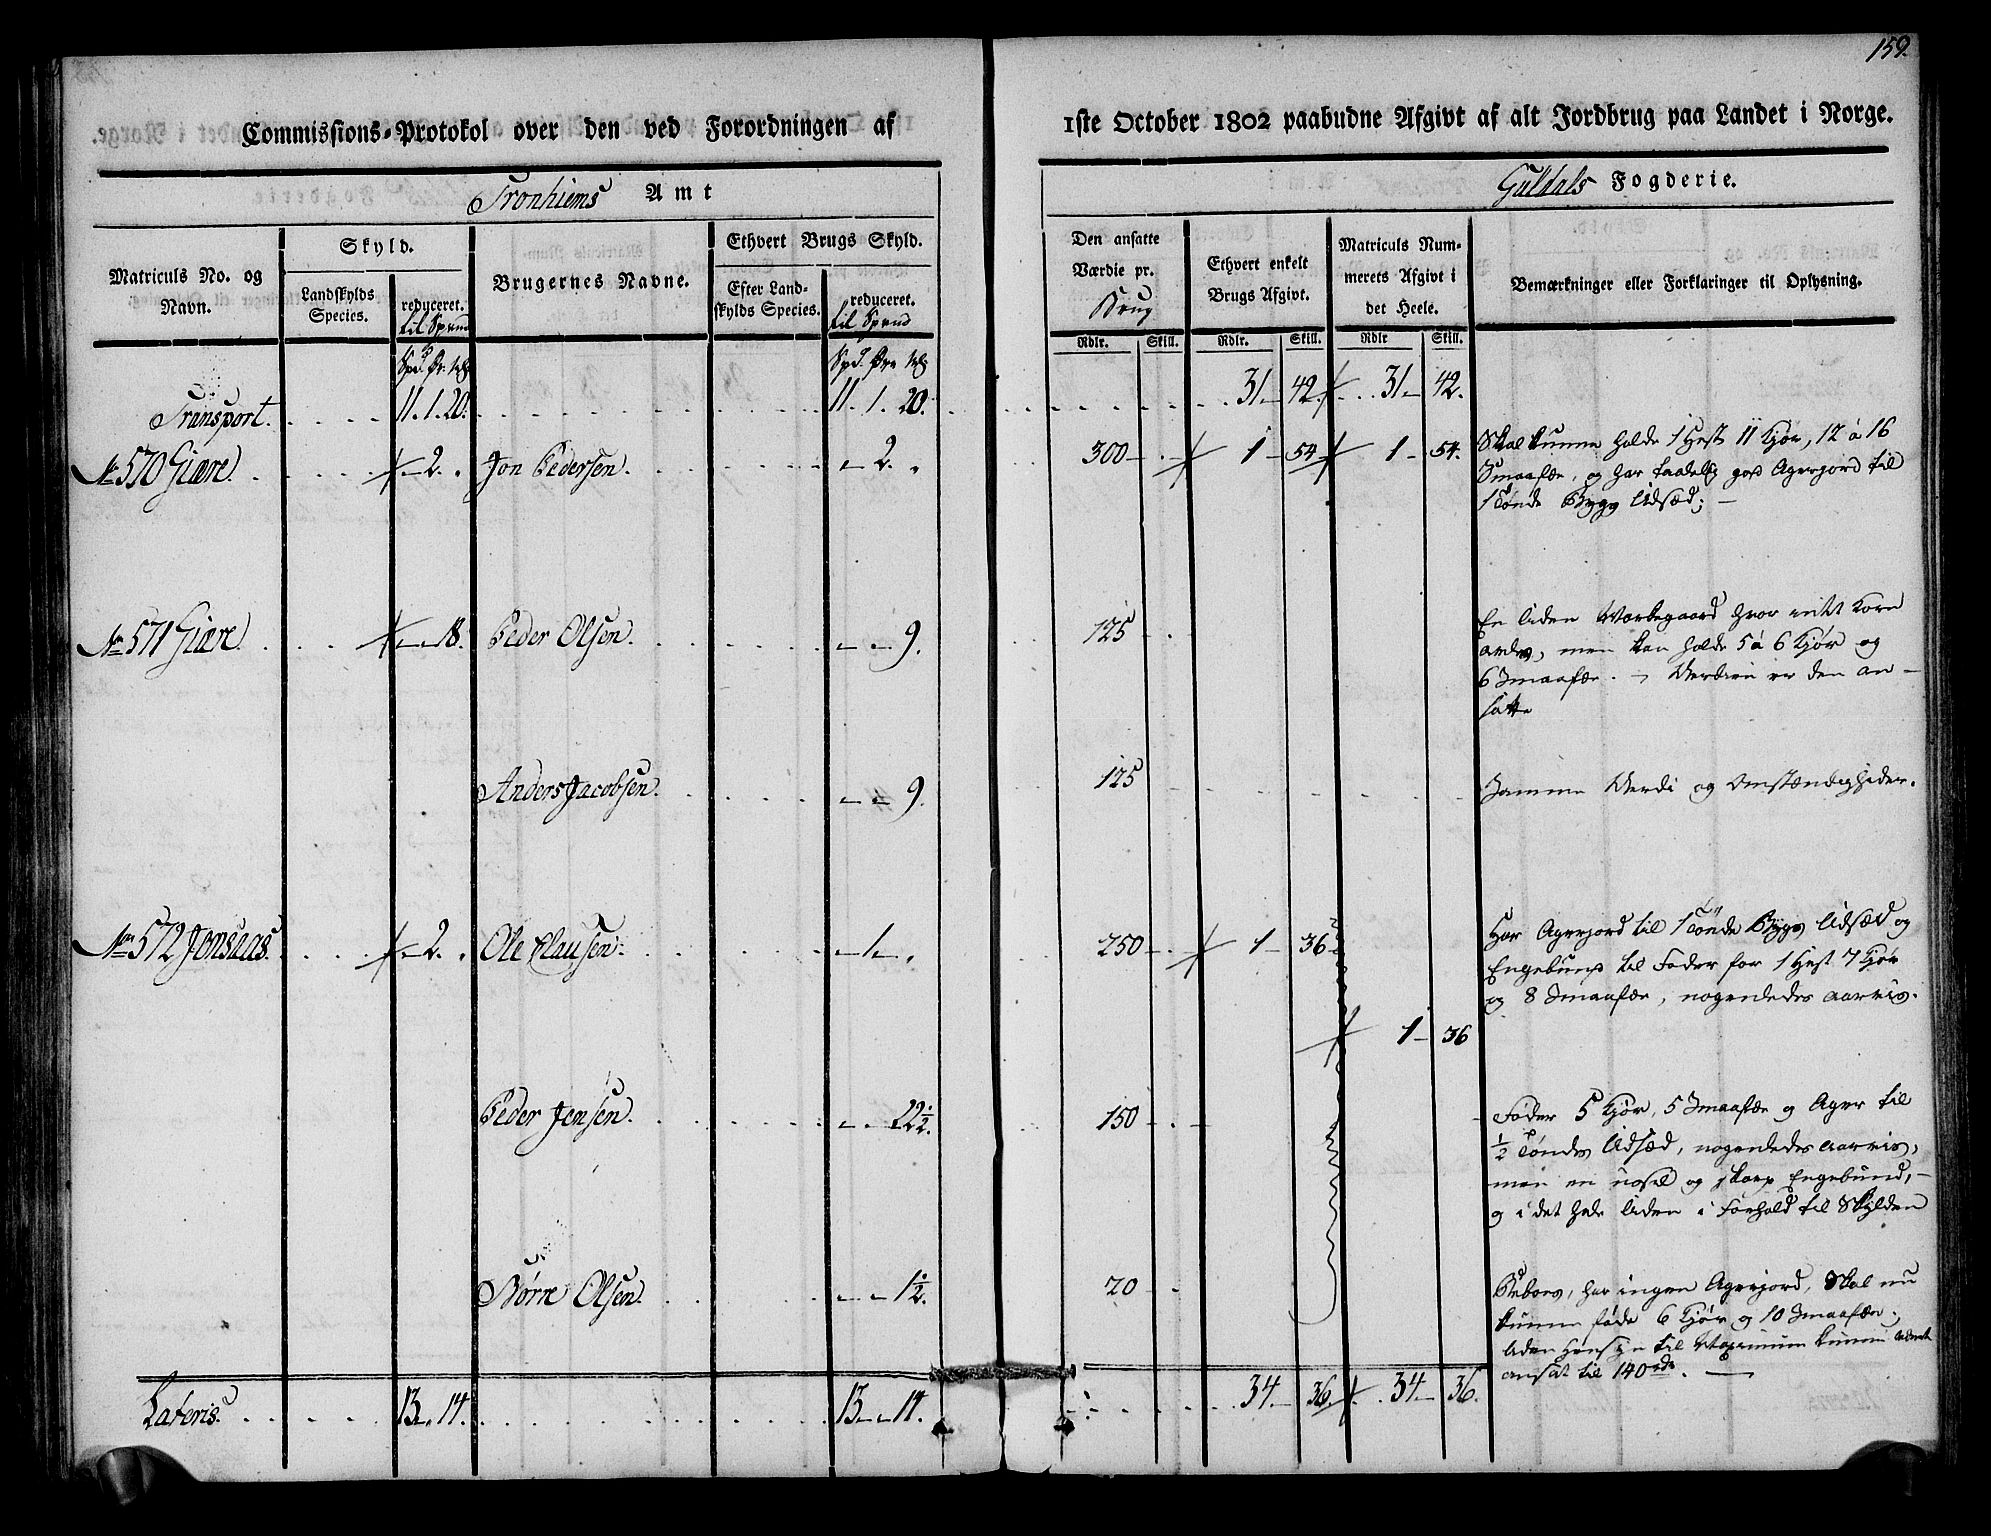 159.
Commissions-Protokol over den ved Forordningen af 1ste October 1802 paabudne Afgivt af alt Jordbrug paa Landet i Norge.
Tronhiems Amt
Guldals Fogderie.
Matriculs No. og Navn.
Skyld.
Landskylds Species.
reduceret. til Spend
Brugernes Navne.
Ethvert Brugs Skyld.
Efter Landskylds Species.
reduceret. til Spend
Den ansatte Værdie pr. Brug
Ethvert enkelt Brugs Afgivt.
Matriculs Nummerets Afgivt i det Heele.
Bemærkninger eller Forklaringer til Oplysning.
Rdlr. Skill. Rdlr. Skill. Rdlr Skill.
Transport. 11. 1. 20. 11. 1. 20. 31 42 31 42.
No 570 Giære. 2. Jon Pedersen. 2. 300 1 54 1 54.
Skal kunne holde 1 Hest 11 Kjør, 12 à 16
Smaafæ, og har taadelig god Agerjord til
1 Tønde Bygg Udsæd; —
No 571 Giære. 18. Peder Olsen. 9. 125
En liden Markegaard hvor intet Korn
avles, men kan holde 5 à 6 Kjør og
6 Smaafæ. Verdien er den an-
satte
Anders Jacobsen. 9. 125
Samme Verdi og Omstændigheder.
No 572 Jonsaas. 2. Ole Clausen. 1 250 1 36
Har Agerjord til 1 Tønde Bygs Udsæd og
Engebund til Foder for 1 Hest 7 Kjør
og 8 Smaafæ, nogenledes aarvis.
1 36
Peder Jensen. 22½. 150
Føder 5 Kjør, 5 Smaafæ og Ager til
½ Tøndes Udsæd, nogenledes aarvis,
men en usel og skarp Engebund,
og i det hele liden i Forhold til Skylden
Børre Olsen. 1½. 20
Beboes, har ingen Agerjord, Skal nu
kunne føde 6 Kjør og 10 Smaafæe,
uden Hensyn til Maximum kunne
ansat til 140 rdr. —
Lateris. 13 14. 13 14. 34 36 34 36.